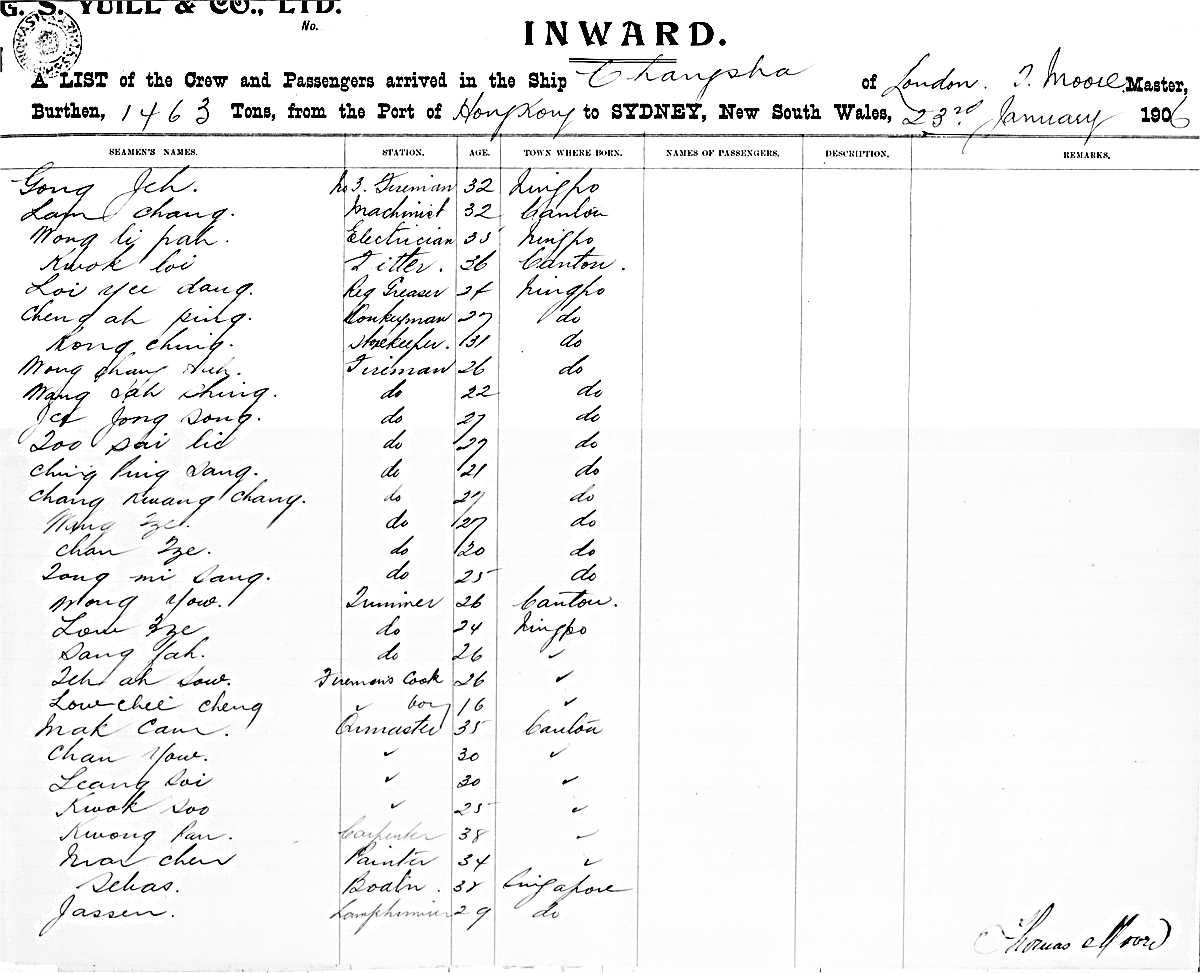 G. S. YUILL & CO., LTD.
No.
INWARD.
A LIST of the Crew and Passengers arrived in the Ship Changsha of London. T. Moore Master,
Burthen, 1463 Tons, from the Port of Hong Kong to SYDNEY, New South Wales, 23rd January 1906
SEAMEN'S NAMES. STATION. AGE. TOWN WHERE BORN. NAMES OF PASSENGERS. DESCRIPTION. REMARKS.
Gong Jeh. No 3. Fireman 32 Ningpo
Lam Chang. Machinist 32 Canton
Wong li pah. Electrician 35 Ningpo
Kwok loi Fitter. 36 Canton.
Loi yee dang. Reg Greaser 24 Ningpo
Cheng ah ping. Donkeyman 27 do
Kong Ching. Storekeeper. 31 do
Wong Chang Fireman 26 do
Wang Sah Ching. do 22 do
Jong Song. do 27 do
Zoo Sai lie do 27 do
Ching Ping Sang. do 21 do
Chang Kwang Chang. do 27 do
Wang Tze. do 27 do
Chan Tze. do 20 do
Tong mi Sang. do 25 do
Wong Yow. Trimmer 26 Canton.
Low Tze do 24 Ningpo
Sang Jah. do 26 "
Jeh ah Sow. Firemans Cook 26 "
Low Chee Cheng " boy 16 "
Mak Cam. Qrmaster 35 Canton
Chan Yow. " 30 "
Leang Soi " 30 "
Kwok Soo " 25 "
Kwong Pan. Carpenter 38 "
Chen Painter 34 "
Sebas. Boatn. 38 Singapore
Jassen. Lamptrimmer 29 do
Thomas Moore